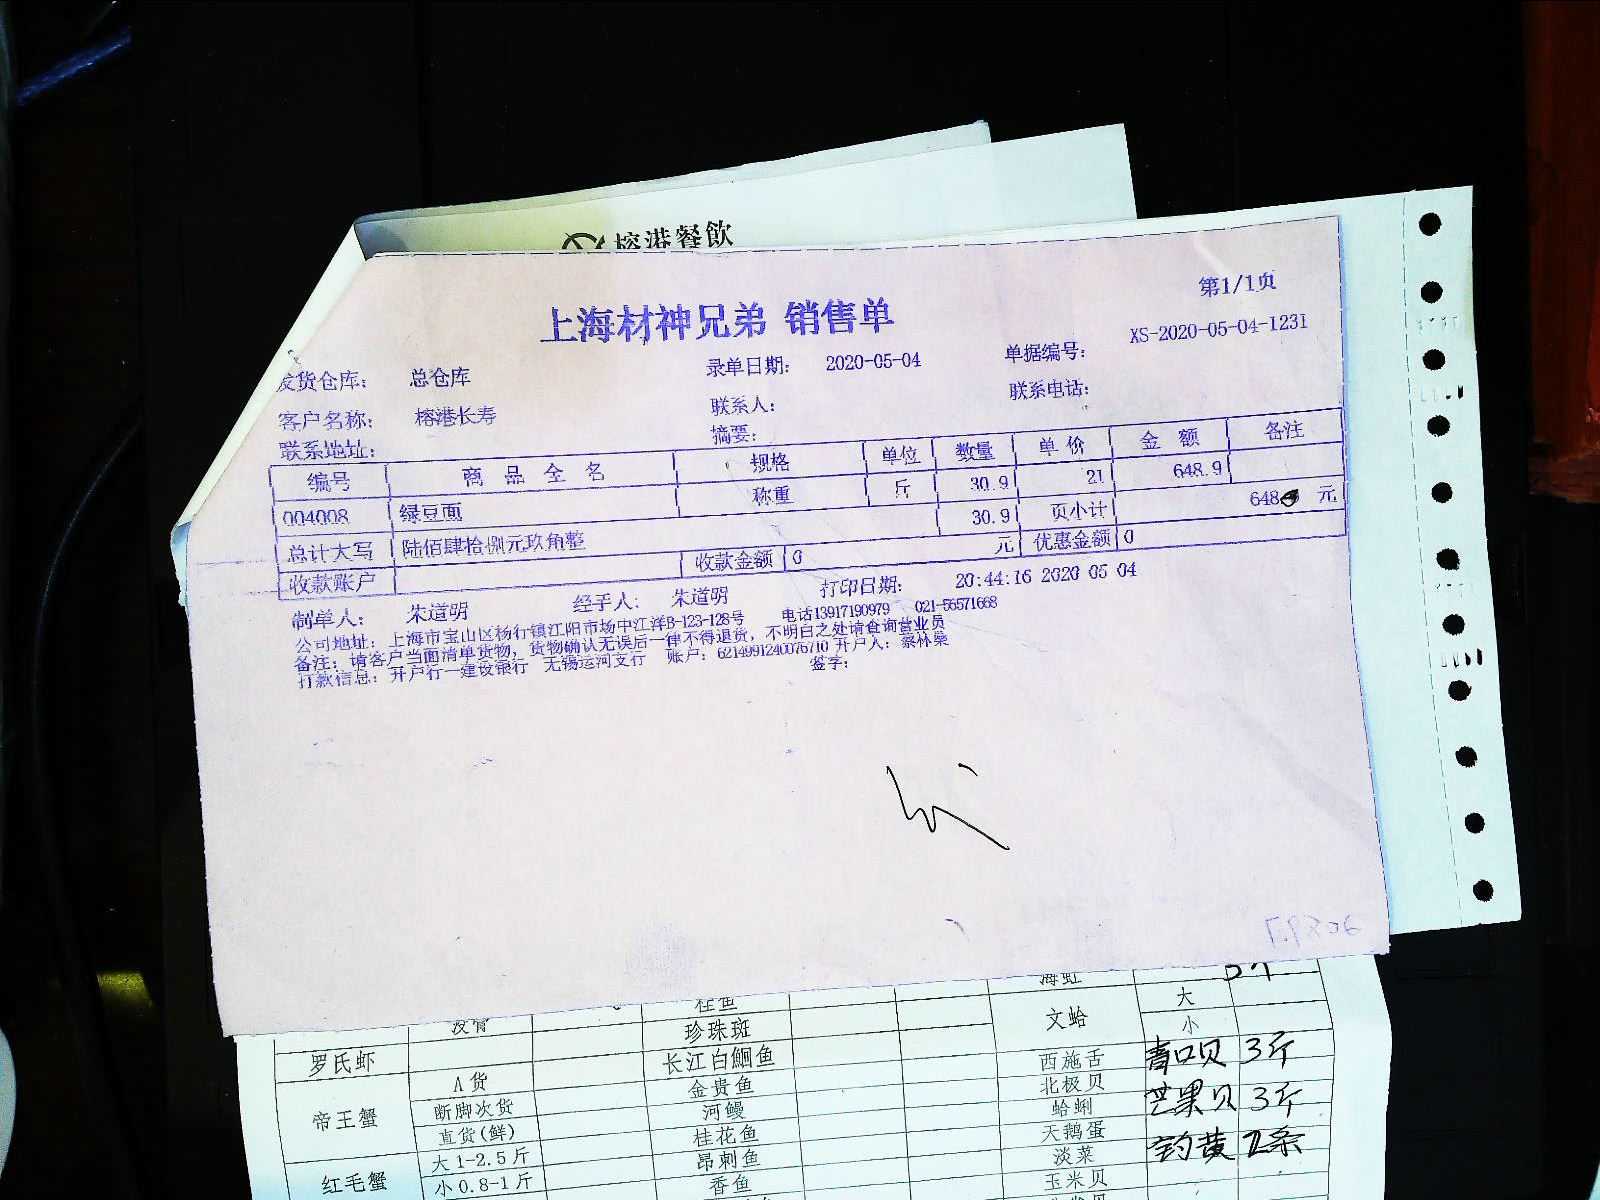 榕港餐飲
上海材神兄弟 销售单
第1/1页
发货仓库： 总仓库 录单日期： 2020-05-04 单据编号： XS-2020-05-04-1231
客户名称： 榕港长寿 联系人： 联系电话：
联系地址： 摘要：
编号 商品全名 规格 单位 数量 单价 金额 备注
004008 绿豆面 称重 斤 30.9 21 648.9
30.9 页小计 648 元
总计大写 陆佰肆拾捌元玖角整
收款账户 收款金额 0 元 优惠金额 0
制单人： 朱道明 经手人： 朱道明 打印日期： 20:44:16 2020 05 04
公司地址： 上海市宝山区杨行镇江阳市场中江洋B-123-128号 电话13917190979 021-56571668
备注： 请客户当面清单货物，货物确认无误后一律不得退货，不明白之处请查询营业员
打款信息： 开户行一建设银行 无锡运河支行 账户：6214991240076710 开户人：蔡林燊
签字：
桂鱼 海虹
珍珠斑 文蛤 大
小
罗氏虾 长江白鮰鱼 西施舌 青口贝 3斤
帝王蟹 A货 金贵鱼 北极贝
断脚次货 河鳗 蛤蜊 芒果贝 3斤
直货(鲜) 桂花鱼 天鹅蛋
红毛蟹 大1-2.5斤 昂刺鱼 淡菜
小0.8-1斤 香鱼 玉米贝